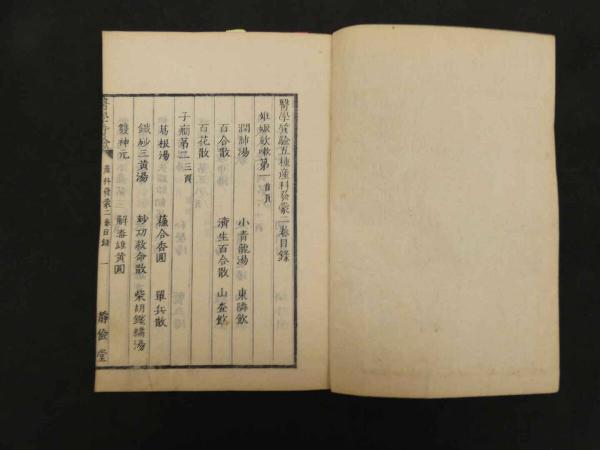 醫學質驗五種産科發蒙二卷目錄
妊娠欬嗽第一 首頁
潤肺湯 小青龍湯 東隣飲
百合散 濟生百合散 山査飲
百花散
子癇第二 三頁
葛根湯 蘓合香圓 單兵散
鐵砂三黄湯 妙功救命散 柴胡鱉
雙神元 解毒雄黄圓
産科發蒙二卷目錄 一
靜儉堂